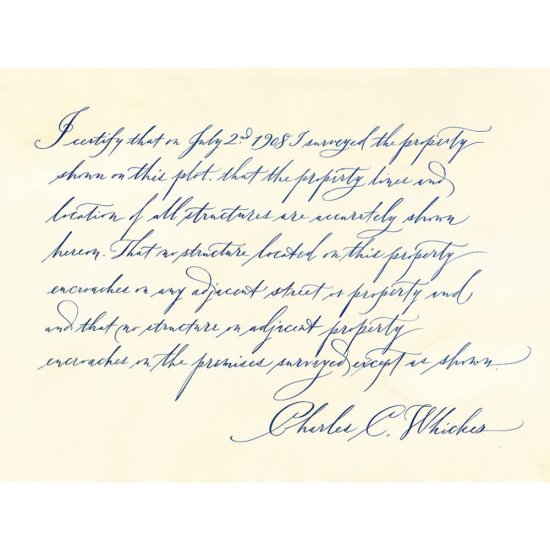 I certify that on July 2nd 1908 I surveyed the property
shown on this plot. that the property lines and
location of all structures are accurately shown
hereon. That no structure located on this property
encroaches on any adjacent street or property and
and that no structure on adjacent property
encroaches on the premises surveyed except as shown.
Charles C. Whicker